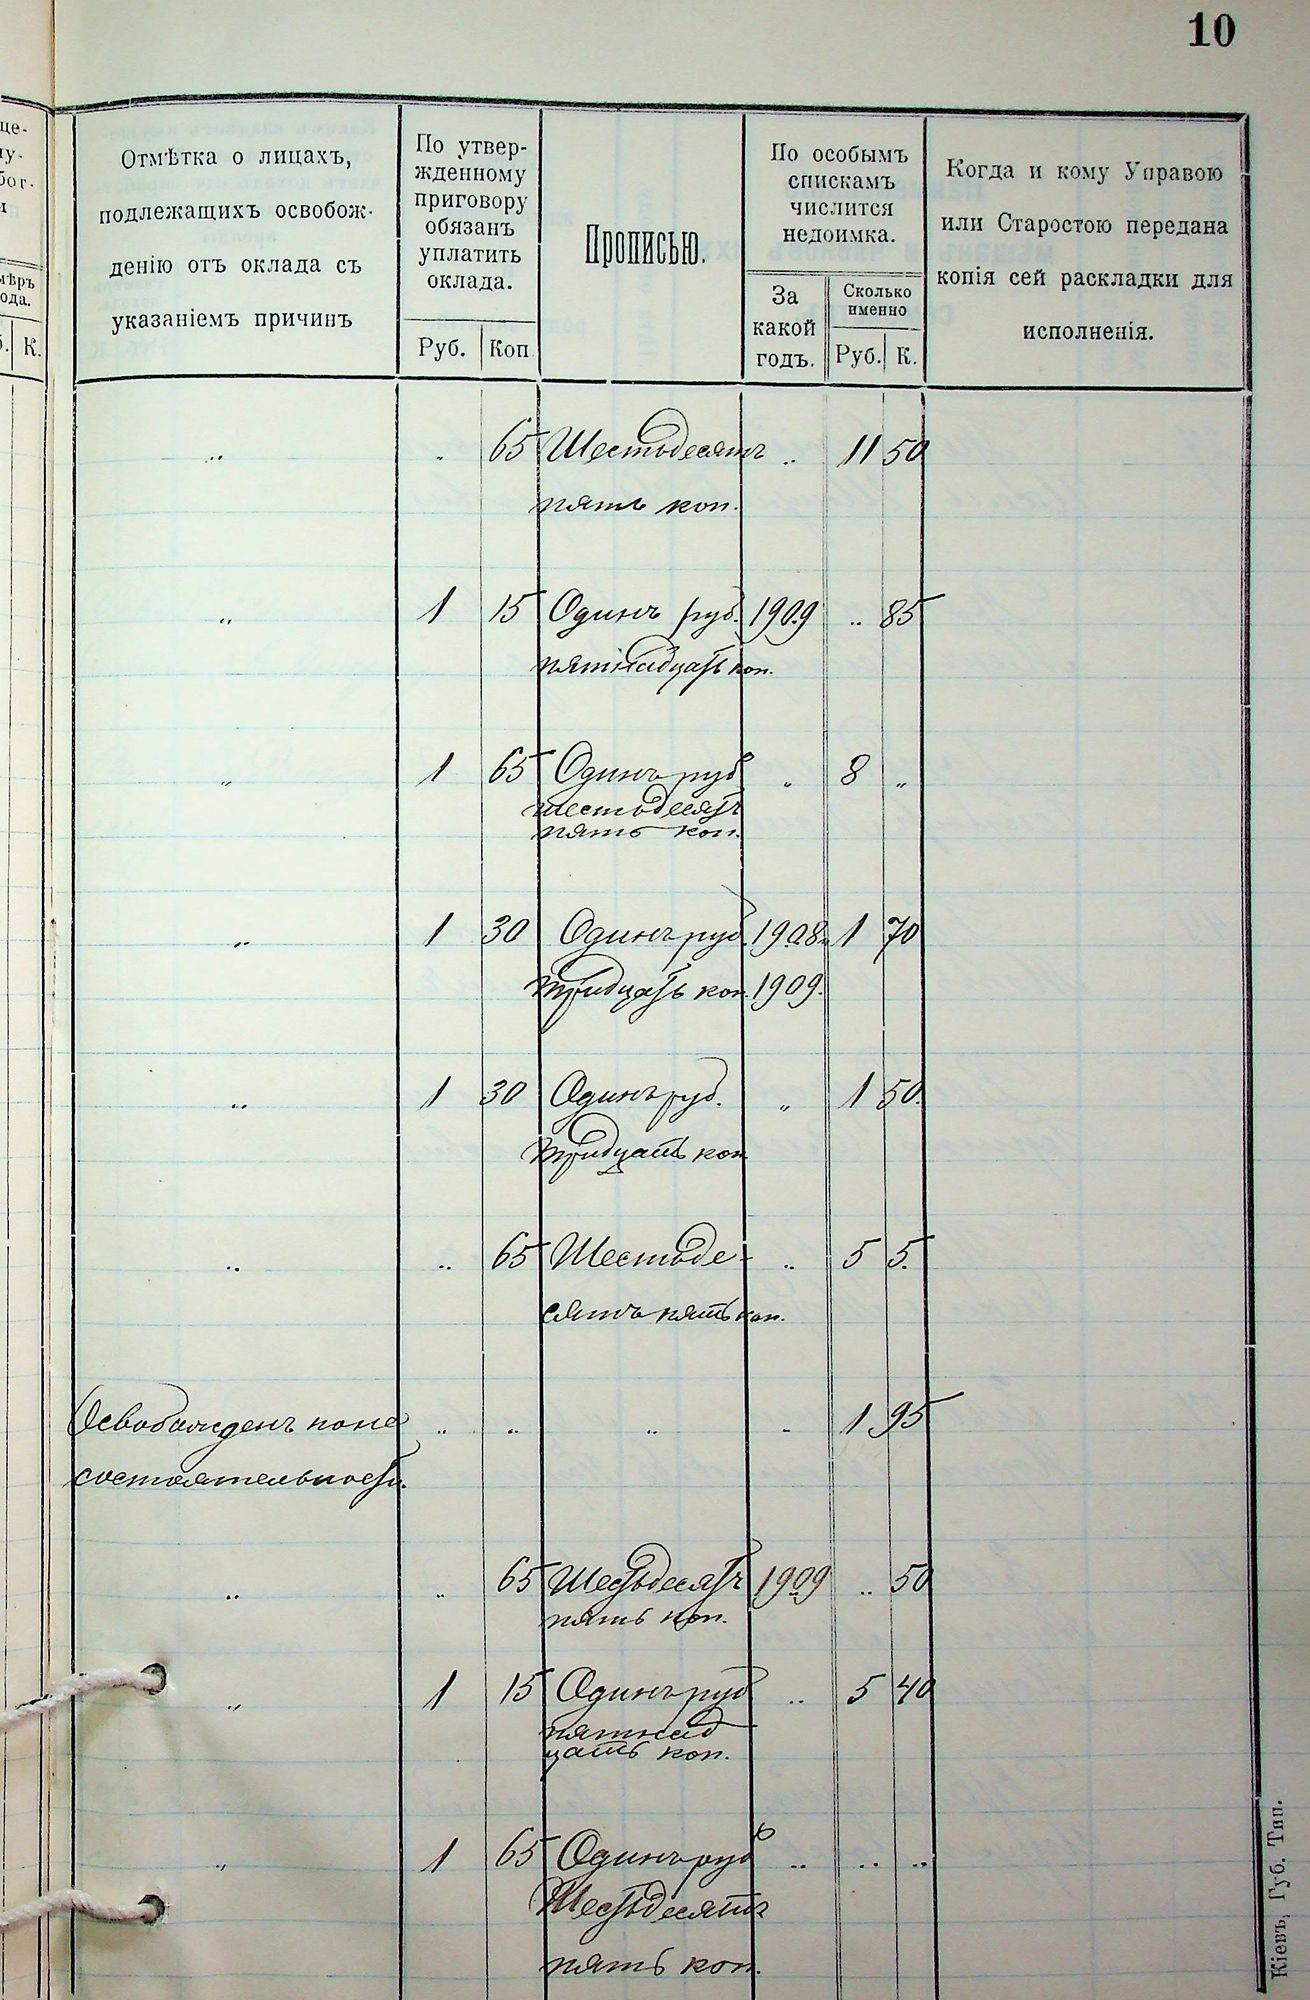 10
Отмѣтка о лицахъ,
подлежащихъ освобож-
денію отъ оклада съ
указаніемъ причинъ
По утвер-
жденному
приговору
обязанъ
уплатить
оклада.
Руб. Коп.
Прописью.
По особымъ
спискамъ
числится
недоимка.
За
какой
годъ.
Сколько
именно
Руб. К.
Когда и кому Управою
или Старостою передана
копія сей раскладки для
исполненія.
„ „ 65 Шестьдесятъ „ 11 50
пять коп.
„ 1 15 Одинъ руб. 1909 „ 85
пятнадцать коп.
„ 1 65 Одинъ руб „ 8 „
шестьдесятъ
пять коп.
„ 1 30 Одинъ руб. 1908 1 70
тридцать коп. 1909.
„ 1 30 Одинъ руб. „ 1 50.
тридцать коп
„ „ 65 Шестьде- „ 5 5.
сятъ пять коп.
Освобожденъ по не „ „ „ „ 1 95
состоятельности.
„ „ 65 Шестьдесятъ 1909 „ 50
пять коп.
„ 1 15 Одинъ руб „ 5 40
пятнад
цать коп.
„ 1 65 Одинъ руб „ „ „
Шестьдесятъ
пять коп.
Кіевъ, Губ. Тип.